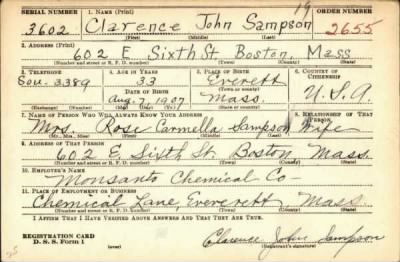 SERIAL NUMBER 1. NAME (Print) ORDER NUMBER
3602 Clarence John Sampson 19 2655
(First) (Middle) (Last)
2. ADDRESS (Print)
602 E Sixth St Boston, Mass
(Number and street or R. F. D. number) (Town) (County) (State)
3. TELEPHONE 4. AGE IN YEARS 5. PLACE OF BIRTH 6. COUNTRY OF CITIZENSHIP
Sou-3389 33 Everett
DATE OF BIRTH (Town or county)
Aug. 7, 1907 Mass. U.S.A
(Exchange) (Number) (Mo.) (Day) (Yr.) (State or country)
7. NAME OF PERSON WHO WILL ALWAYS KNOW YOUR ADDRESS 8. RELATIONSHIP OF THAT PERSON
Mrs. Rose Carmella Sampson Wife
(Mr., Mrs., Miss) (First) (Middle) (Last)
9. ADDRESS OF THAT PERSON
602 E Sixth St Boston Mass.
(Number and street or R. F. D. number) (Town) (County) (State)
10. EMPLOYER'S NAME
Monsanto Chemical Co-
11. PLACE OF EMPLOYMENT OR BUSINESS
Chemical Lane, Evererett, Mass.
(Number and street or R. F. D. number) (Town) (County) (State)
I AFFIRM THAT I HAVE VERIFIED ABOVE ANSWERS AND THAT THEY ARE TRUE.
REGISTRATION CARD
D. S. S. Form 1 (over) Clarence John Sampson
(Registrant's signature)